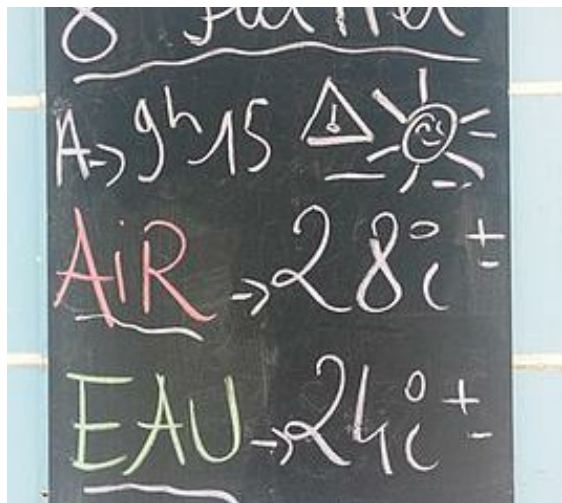 8 Juillet
A→ 9h15
AiR → 28°c ±
EAU → 24°c ±